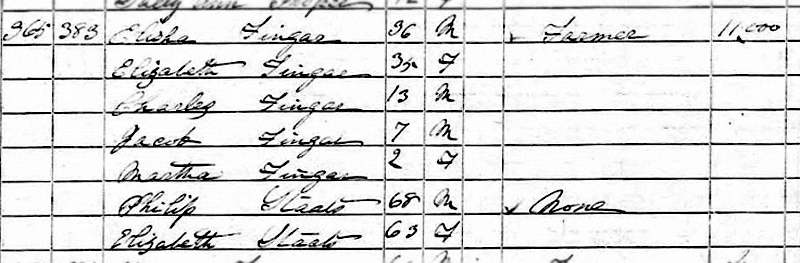 Sally Ann
365 383 Elisha Fingar 36 M Farmer 11,000
Elizabeth Fingar 35 F
Charles Fingar 13 M
Jacob Fingar 7 M
Martha Fingar 2 F
Philip Staats 68 M None
Elizabeth Staats 63 F